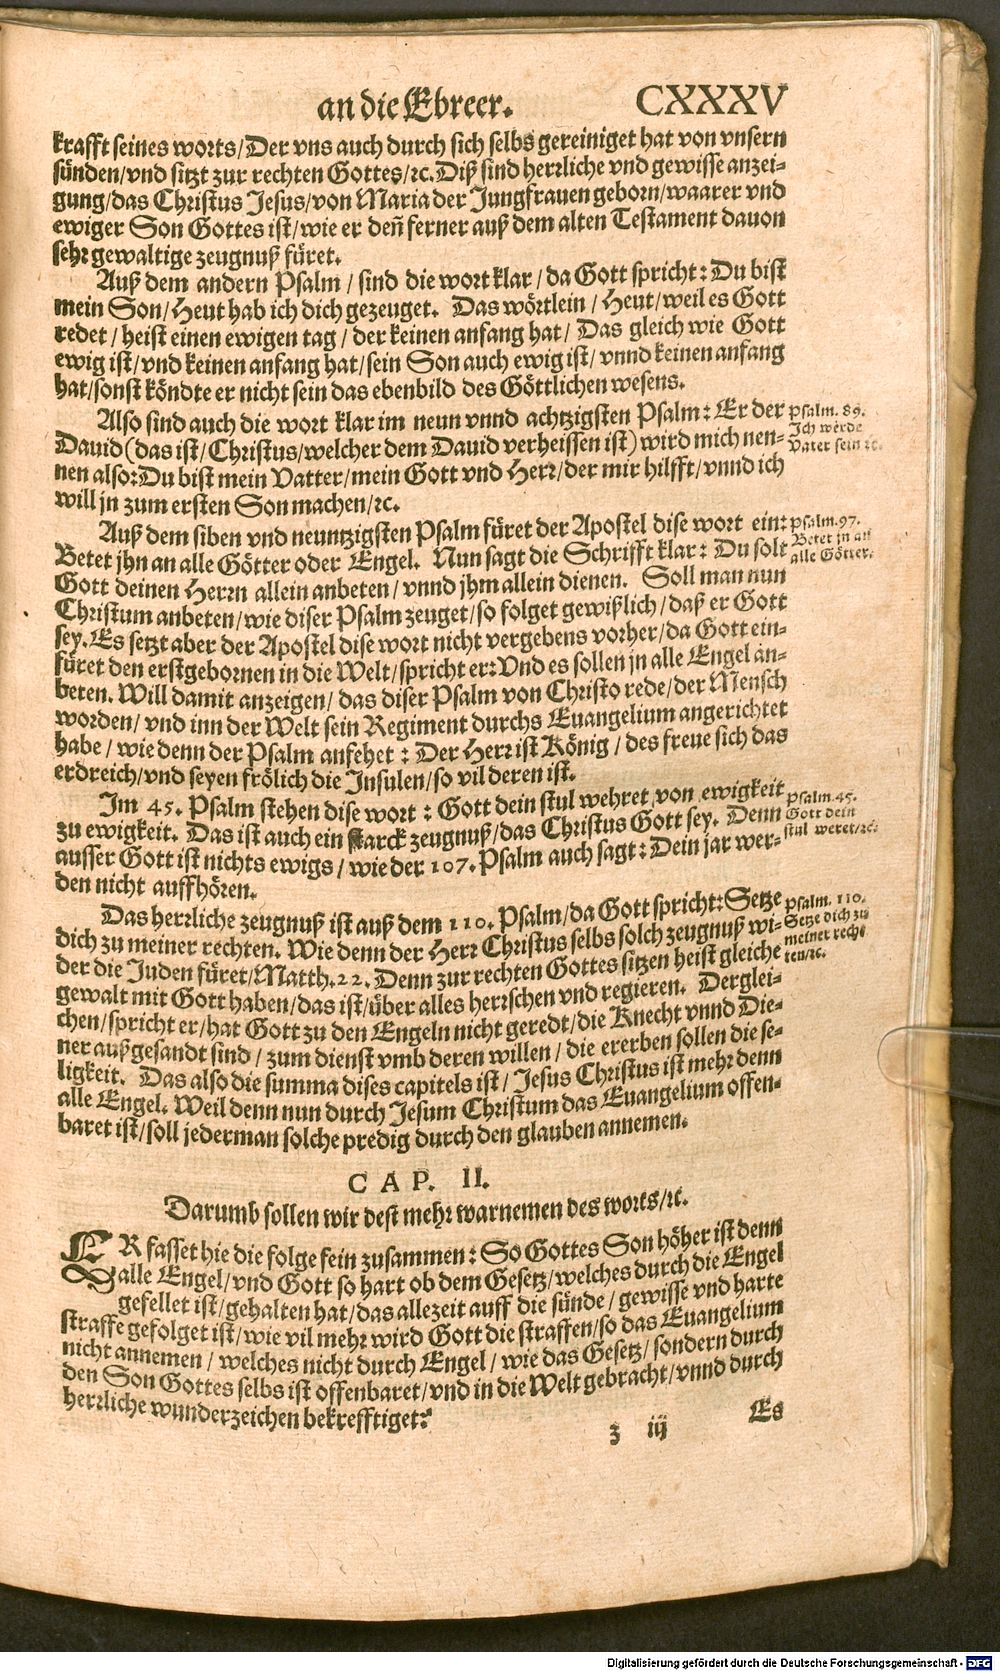 an die Ebreer. CXXXV
krafft seines worts/Der vns auch durch sich selbs gereiniget hat von vnsern
sünden/vnd sitzt zur rechten Gottes/ꝛc. Diß sind herrliche vnd gewisse anzei-
gung/das Christus Jesus/von Maria der Jungfrauen geborn/waarer vnd
ewiger Son Gottes ist/wie er deñ ferner auß dem alten Testament dauon
sehr gewaltige zeugnuß füret.
Auß dem andern Psalm / sind die wort klar / da Gott spricht: Du bist
mein Son/Heut hab ich dich gezeuget. Das wörtlein / Heut/ weil es Gott
redet / heist einen ewigen tag / der keinen anfang hat/ Das gleich wie Gott
ewig ist/vnd keinen anfang hat/sein Son auch ewig ist/ vnnd keinen anfang
hat/sonst köndte er nicht sein das ebenbild des Göttlichen wesens.
Also sind auch die wort klar im neun vnnd achtzigsten Psalm: Er der
Dauid (das ist/Christus/welcher dem Dauid verheissen ist) wird mich nen-
nen also: Du bist mein Vatter/mein Gott vnd Herr/der mir hilfft/vnnd ich
will jn zum ersten Son machen/ꝛc.
Psalm. 89.
Ich werde
Vater sein ꝛc.
Auß dem siben vnd neuntzigsten Psalm füret der Apostel dise wort ein:
Betet jhn an alle Götter oder Engel. Nun sagt die Schrifft klar: Du solt
Gott deinen Herrn allein anbeten/ vnnd jhm allein dienen. Soll man nun
Christum anbeten/wie diser Psalm zeuget/so folget gewißlich/daß er Gott
sey. Es setzt aber der Apostel dise wort nicht vergebens vorher/da Gott ein-
füret den erstgebornen in die Welt/spricht er: Vnd es sollen jn alle Engel an-
beten. Will damit anzeigen/ das diser Psalm von Christo rede/der Mensch
worden/ vnd inn der Welt sein Regiment durchs Euangelium angerichtet
habe / wie denn der Psalm anfehet : Der Herr ist König / des freue sich das
erdreich/vnd seyen frölich die Insulen/so vil deren ist.
Psalm. 97.
Betet jn an
alle Götter.
Im 45. Psalm stehen dise wort : Gott dein stul wehret von ewigkeit
zu ewigkeit. Das ist auch ein starck zeugnuß/das Christus Gott sey. Denn
ausser Gott ist nichts ewigs / wie der 107. Psalm auch sagt: Dein jar wer-
den nicht auffhören.
Psalm. 45.
Gott dein
stul weret/ꝛc.
Das herrliche zeugnuß ist auß dem 110. Psalm/da Gott spricht: Setze
dich zu meiner rechten. Wie denn der Herr Christus selbs solch zeugnuß wi-
der die Juden füret/Matth. 22. Denn zur rechten Gottes sitzen heist gleiche
gewalt mit Gott haben/das ist/über alles herrschen vnd regieren. Derglei-
chen/spricht er/hat Gott zu den Engeln nicht geredt/die Knecht vnnd Die-
ner außgesandt sind / zum dienst vmb deren willen / die ererben sollen die se-
ligkeit. Das also die summa dises capitels ist / Jesus Christus ist mehr denn
alle Engel. Weil denn nun durch Jesum Christum das Euangelium offen-
baret ist/soll jederman solche predig durch den glauben annemen.
Psalm. 110.
Setze dich zu
meiner rech-
ten/ꝛc.
CAP. II.
Darumb sollen wir dest mehr warnemen des worts/ꝛc.
ER fasset hie die folge fein zusammen: So Gottes Son höher ist denn
alle Engel/vnd Gott so hart ob dem Gesetz/welches durch die Engel
gefellet ist/gehalten hat/das allezeit auff die sünde / gewisse vnd harte
straffe gefolget ist/wie vil mehr wird Gott die straffen/so das Euangelium
nicht annemen / welches nicht durch Engel / wie das Gesetz/ sondern durch
den Son Gottes selbs ist offenbaret/vnd in die Welt gebracht/vnnd durch
herrliche wunderzeichen bekrefftiget?
z iij Es
Digitalisierung gefördert durch die Deutsche Forschungsgemeinschaft - DFG